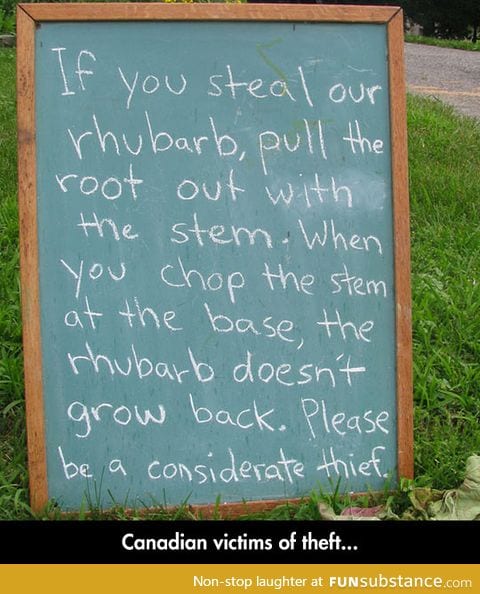 If you steal our
rhubarb, pull the
root out with
the stem. When
you chop the stem
at the base, the
rhubarb doesn't
grow back. Please
be a considerate thief.
Canadian victims of theft...
Non-stop laughter at FUNsubstance.com